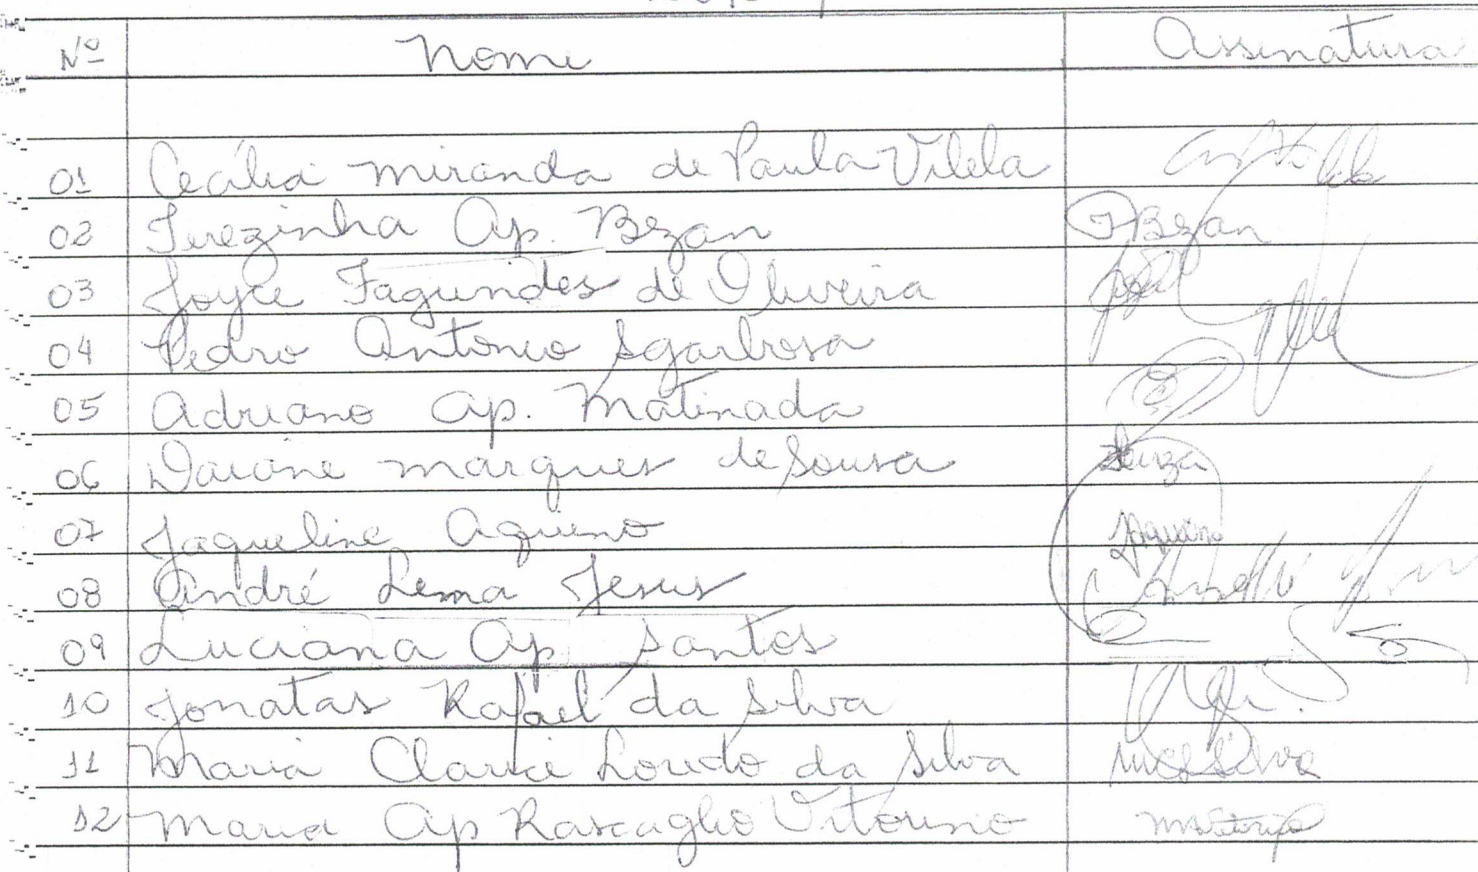 Nº Nome Assinatura
01 Cecília Miranda de Paula Vilela
02 Terezinha Ap. Bezan TBezan
03 Joyce Fagundes de Oliveira
04 Pedro Antonio Sgarbosa
05 Adriano Ap. Matinada
06 Daiane Marques de Sousa Souza
07 Jaqueline Aquino JAquino
08 André Lima Jesus
09 Luciana Ap Santos
10 Jonatas Rafael da Silva
11 Maria Clarice Loredo da Silva
12 Maria Ap Rascaglio Vitorino